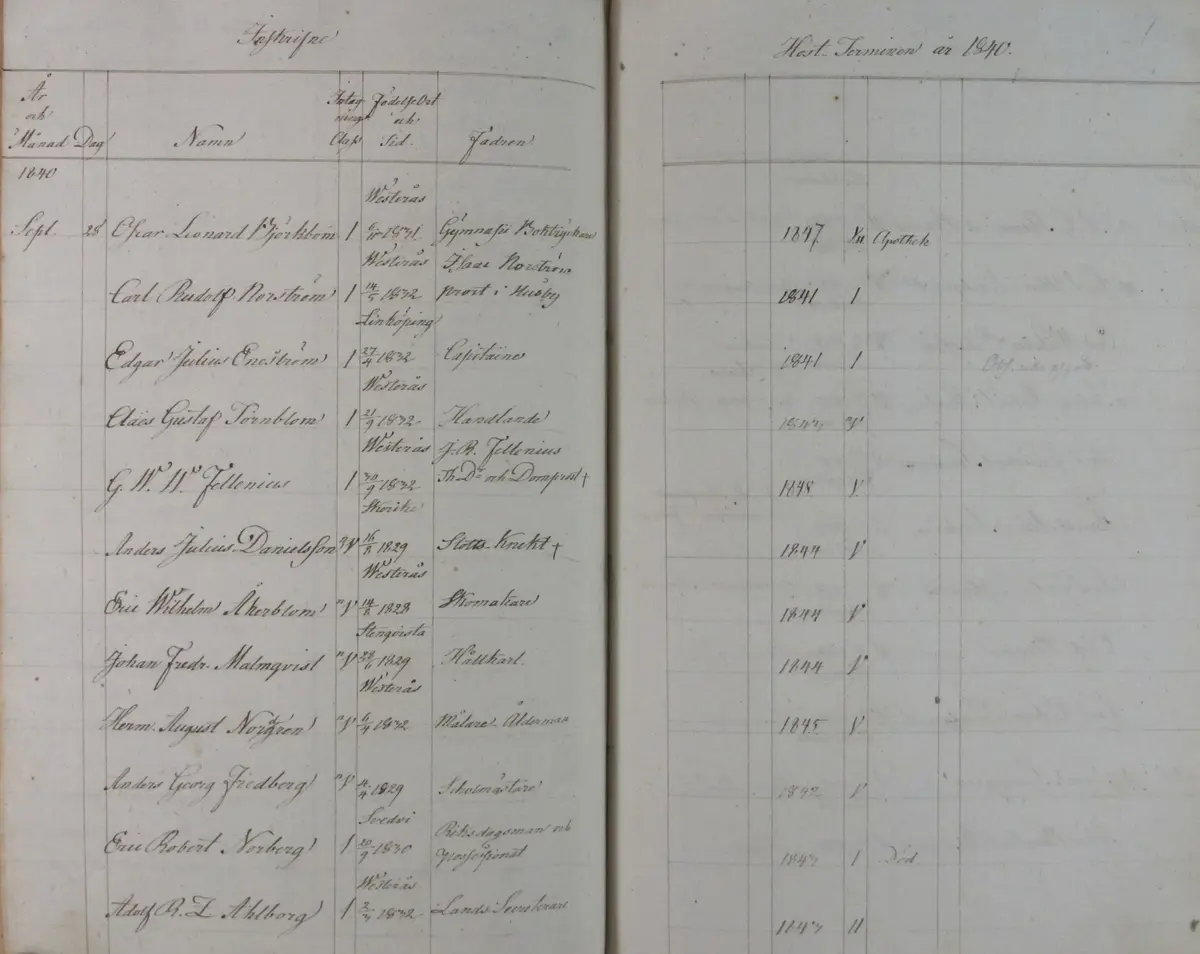 Inskrifne
Höst-Terminen år 1840.
År och Månad Dag Namn Intagnings Class Födelse Ort och Tid. Fadren
1840
Westerås
Sept. 28 Oscar Leonard Björkbom 1 1831 Gymnasii Boktryckare 1847 Apothek
Westerås Isaac Norström
Carl Rudolf Norström 1 14/5 1832 prost i Husby 1841 1
Linköping
Edgar Julius Eneström 1 27/4 1832 Capitaine 1841 1
Westerås
Claës Gustaf Törnblom 1 21/9 1832 Handlande V
Westerås J. R. Fellenius
G. W. W. Fellenius 1 30/9 1832 Th. Dr och Domprost † 1848 V
Anders Julius Danielsson V 16/8 1829 Slotts-Knekt † 1844 V
Westerås
Eric Wilhelm Åkerblom V 14/8 1828 Skomakare 1844 V
Stenqvista
Johan Fredr. Malmqvist V 1829 Hållkarl. 1844 V
Westerås
Herm. August Nordgren V 6/4 1832 Målare-Ålderman 1845 V
Anders Georg Friedberg V 1829 Scholmästare 1842 V
Svedvi Riksdagsman och
Eric Robert Norberg 1 20/9 1830 possessionat 1843 1 Död
Westerås
Adolf R. L Ahlborg 1 1832 Lands Secreterare 1843 II